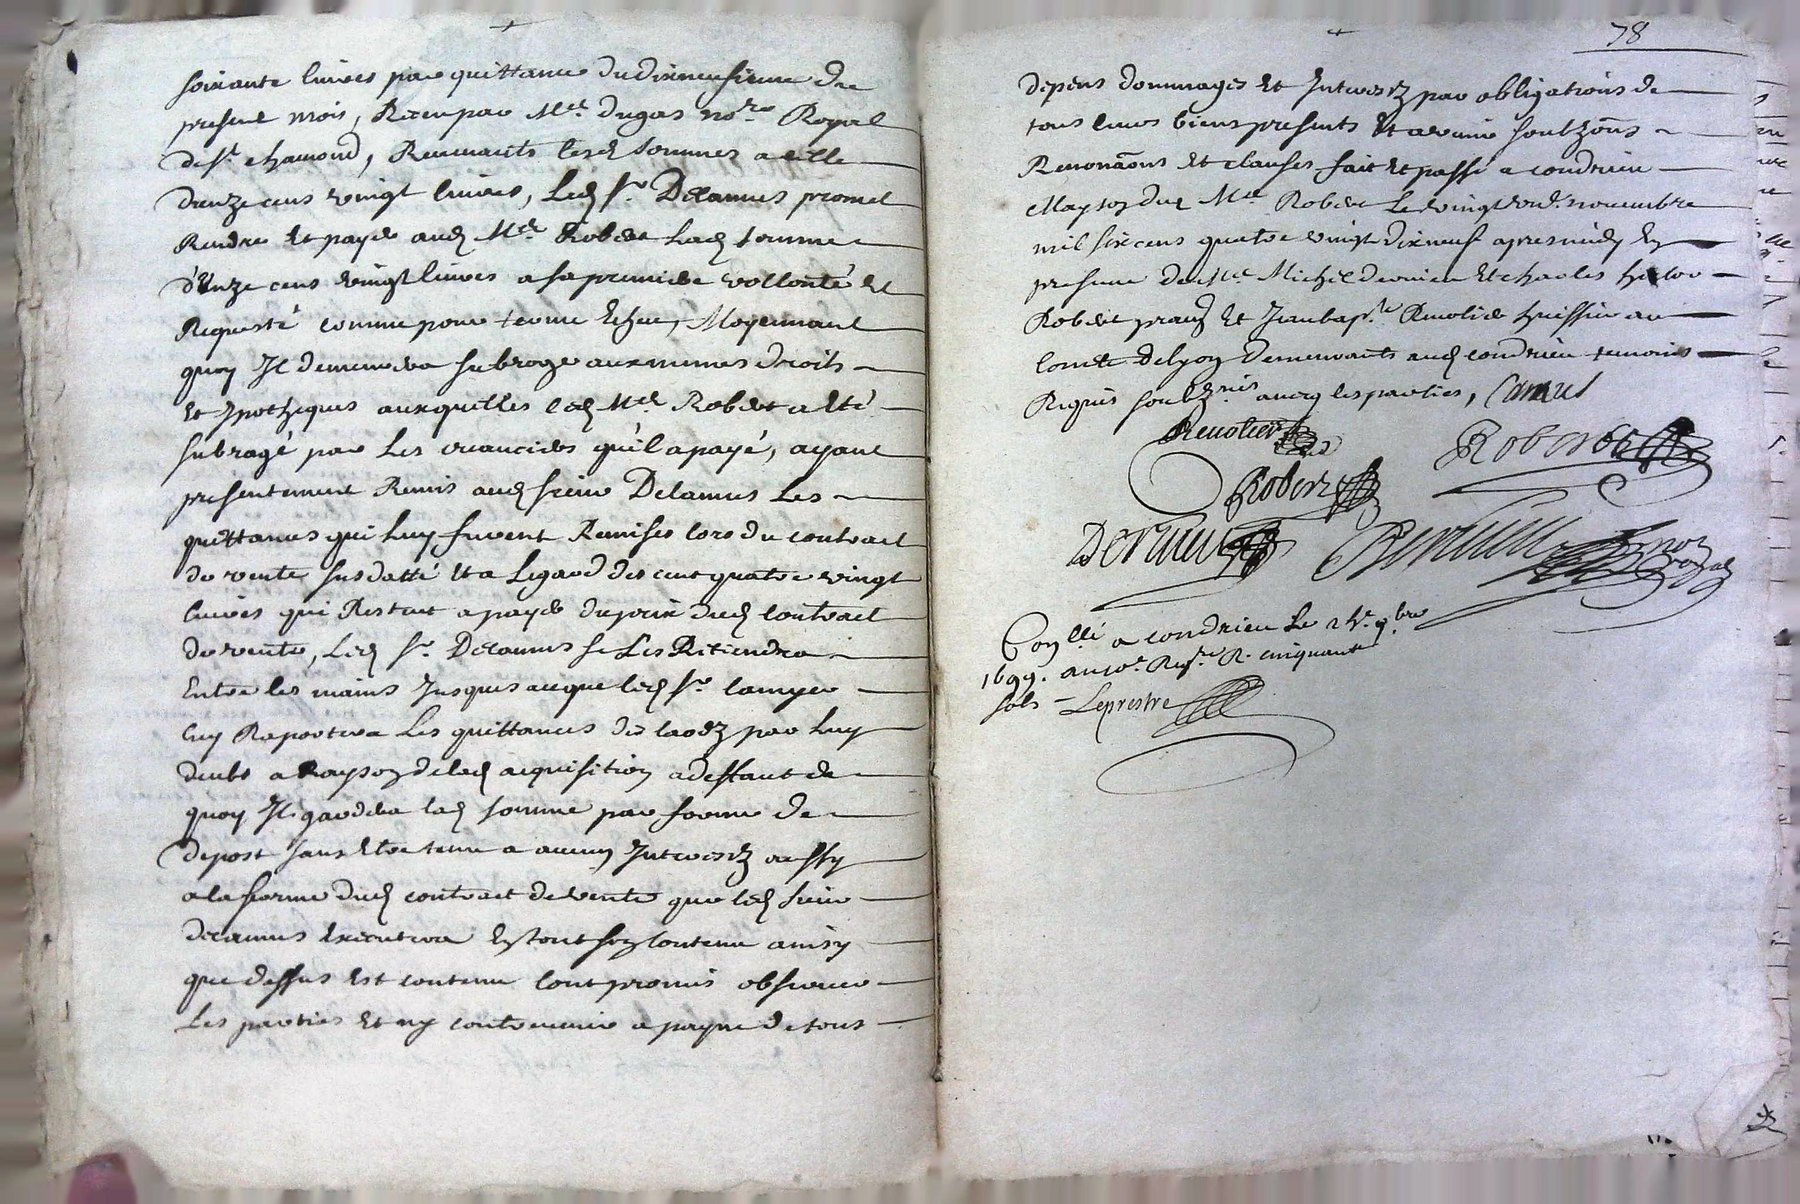 soixante livres par quittance du dixneufieme du
present mois, Receu par Me. dugas nore. Royal
de St. chamond, Revenants lesd. sommes a celle
d'unze cens vingt livres, Led. Sr. Decamus promet
Rendre et payer aud. Me. Robert lad. somme
d'unze cens vingt livres a sa premiere vollonté et
Requeste comme pour terme escheu, Moyennant
quoy Il demeurera subrogé aux mesmes droits
et Ypotheques auxquelles led. Me. Robert a été
subrogé par les creanciers qu'il a payé, ayant
presentement Remis aud. sieur Decamus les
quittances qui luy furent Remises lors du contract
de vente susdatté et a legard des cent quatre vingt
livres qui Restent a payer du prix dud. contract
de vente, Led. Sr. Decamus se les Retiendra
entre les mains Jusques a ce que led. Sr.
luy Raportera les quittances des laodz par luy
deubs a Rayson de lad. acquisition a deffaut de
quoy Il gardera lad. somme par forme de
depost sans etre tenu a aucun Interestz aussy
a la forme dud. contract de vente que led. sieur
decamus executera en tout son contenu ainsy
que dessus est contenu l'ont promis observer
Les parties et ny contrevenir a payne de tous
78
depens dommages et Interestz par obligations de
tous leurs biens presents et avenir soubz.ons
Renonãons et clauses fait et passé a condrieu
Mayson dud. Me. Robert le vingt novembre
mil six cens quatre vingt dixneuf apres midy en
presence de Me. Michel dervieu et charles hector
Robert prauq. et Jean bap.te Revolier huissier au
comté de lyon demeurants aud. condrieu temoins
Requis soubz.nés avecq les parties, Camus
Revolier
Robert
Robert
Dervieu
Dervieu
Conllé a condrieu le 9bre
1699. R. cinquante
sols - Leprestre